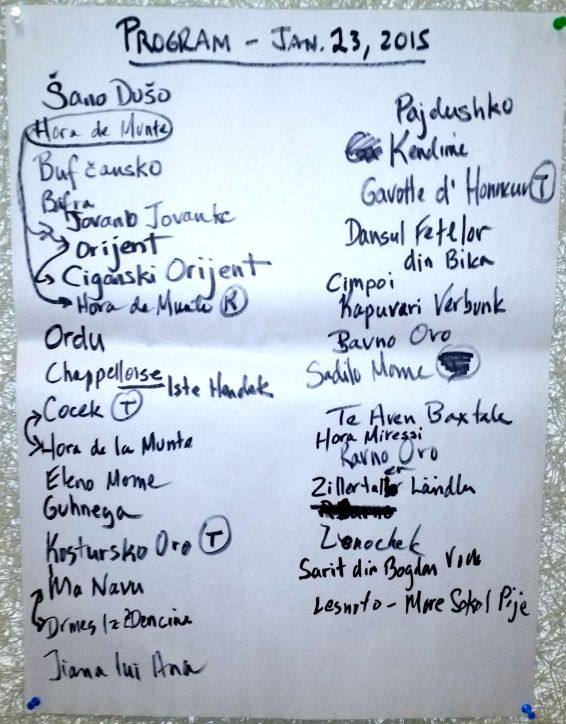 PROGRAM - JAN. 23, 2015
Šano Dušo
Hora de Munte
Buf čansko
Bafra
Jovano Jovanke
Orijent
Ciganski Orijent
Hora de Munte R
Ordu
Chappelloise
Iste Hendek
Cocek T
Hora de la Munte
Eleno Mome
Guhnega
Kostursko Oro T
Ma Navu
Drmes Iz Zdencina
Jiana lui Ana
Pajdushko
Kendime
Gavotte d' Honneur T
Dansul Fetelor
din Bika
Cimpoi
Kapuvari Verbunk
Ravno Oro
Sadilo Mome
Te Aven Baxtale
Hora Miresei
Ravno Oro
Zillertaler Ländler
Zonochek
Sarit din Bogdan Voda
Lesnoto - More Sokol Pije